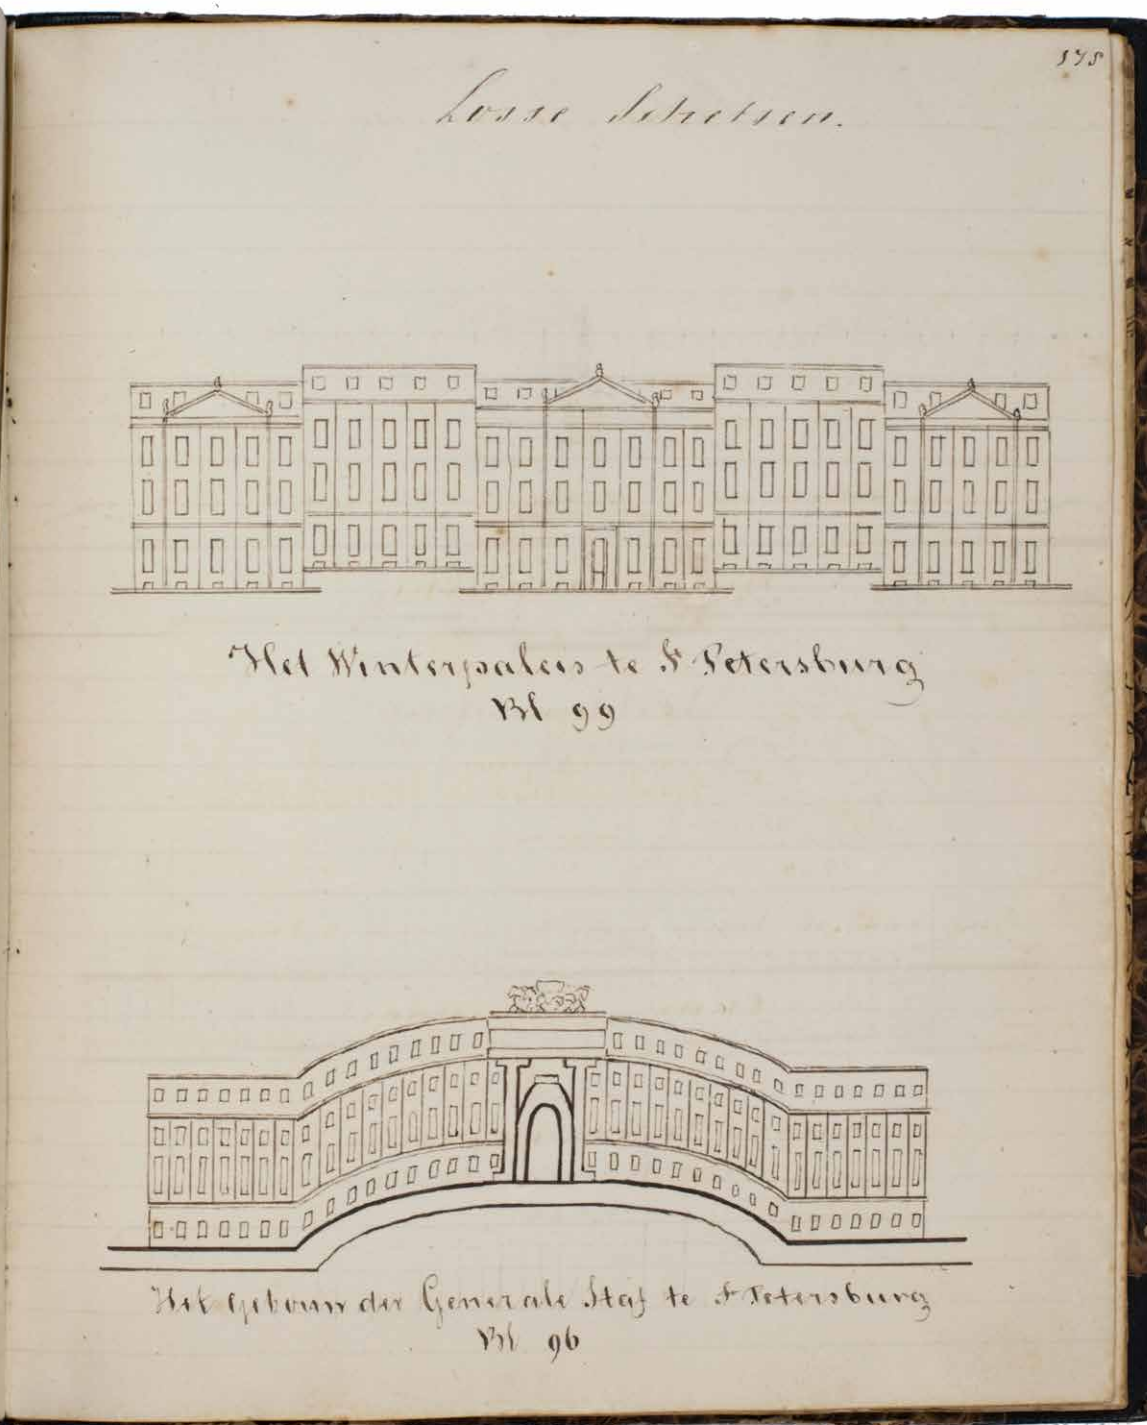 175
Losse Schetsen.
Het Winterpaleis te St Petersburg
Bl 99
Het Gebouw der Generale Staf te St Petersburg
Bl 96